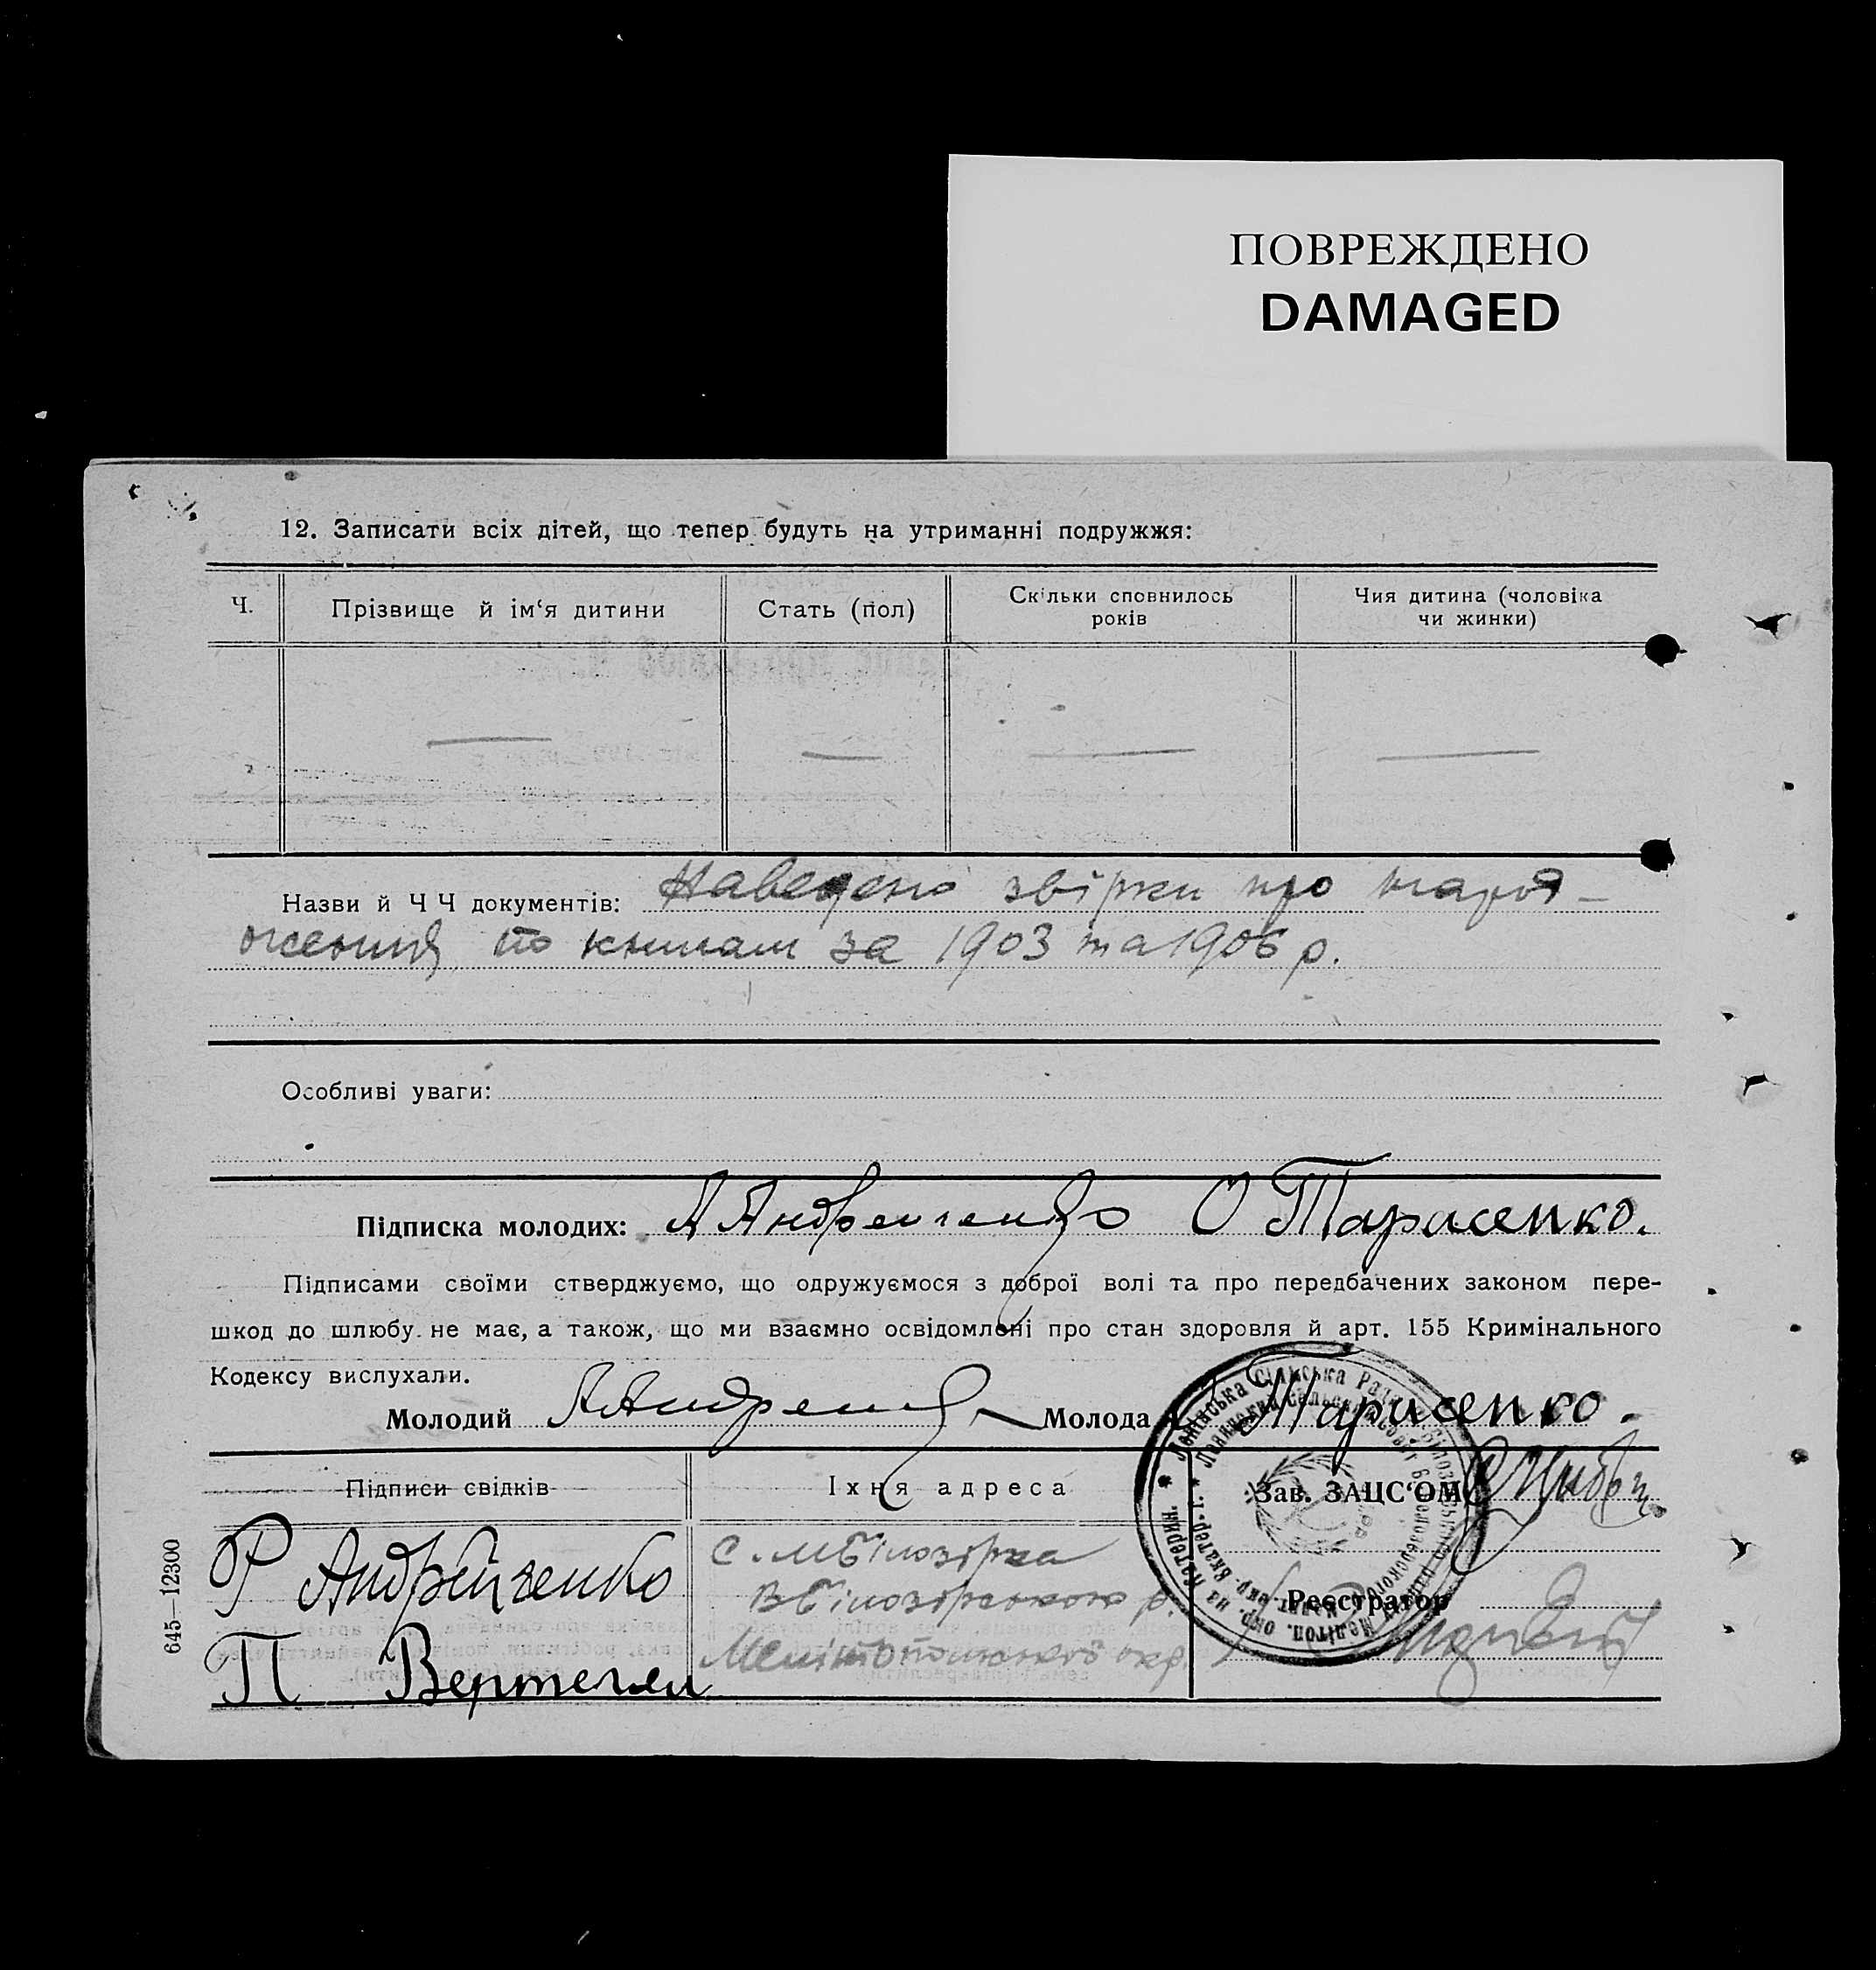 ПОВРЕЖДЕНО
DAMAGED
12. Записати всіх дітей, що тепер будуть на утриманні подружжя:
Ч.
Прізвище й ім‘я дитини
Стать (пол)
Скільки сповнилось
років
Чия дитина (чоловіка
чи жинки)
Назви й Ч Ч документів: Наведено звірки про народ-
ження по книгам за 1903 та 1906 р.
Особливі уваги:
Підписка молодих: А Андрейченко О Тарасенко.
Підписами своїми стверджуємо, що одружуємося з доброї волі та про передбачених законом пере-
шкод до шлюбу не має, а також, що ми взаємно освідомлені про стан здоровля й арт. 155 Кримінального
Кодексу вислухали.
Молодий Молода Тарасенко.
Підписи свідків
Їхня адреса
Зав. ЗАЦС‘ОМ
Р Андрейченко
с. М Білозірка
В Білозірського р.
Реєстратор
П Вертегел
Мелітопольської окр.
645—12300